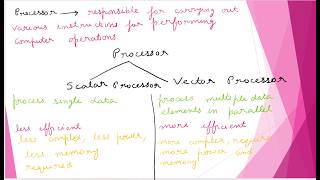 Processor → responsible for carrying out
various instructions for performing
computer operations.
Processor
Scalar Processor Vector Processor
process single data
less efficient
less complex, less power,
less memory
required
process multiple data
elements in parallel
more efficient
more complex, require
more power and
memory